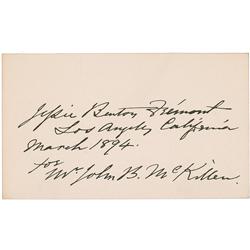 Jessie Benton Frémont
Los Angeles California
March 1894.
for
Mr John B. McKillen.